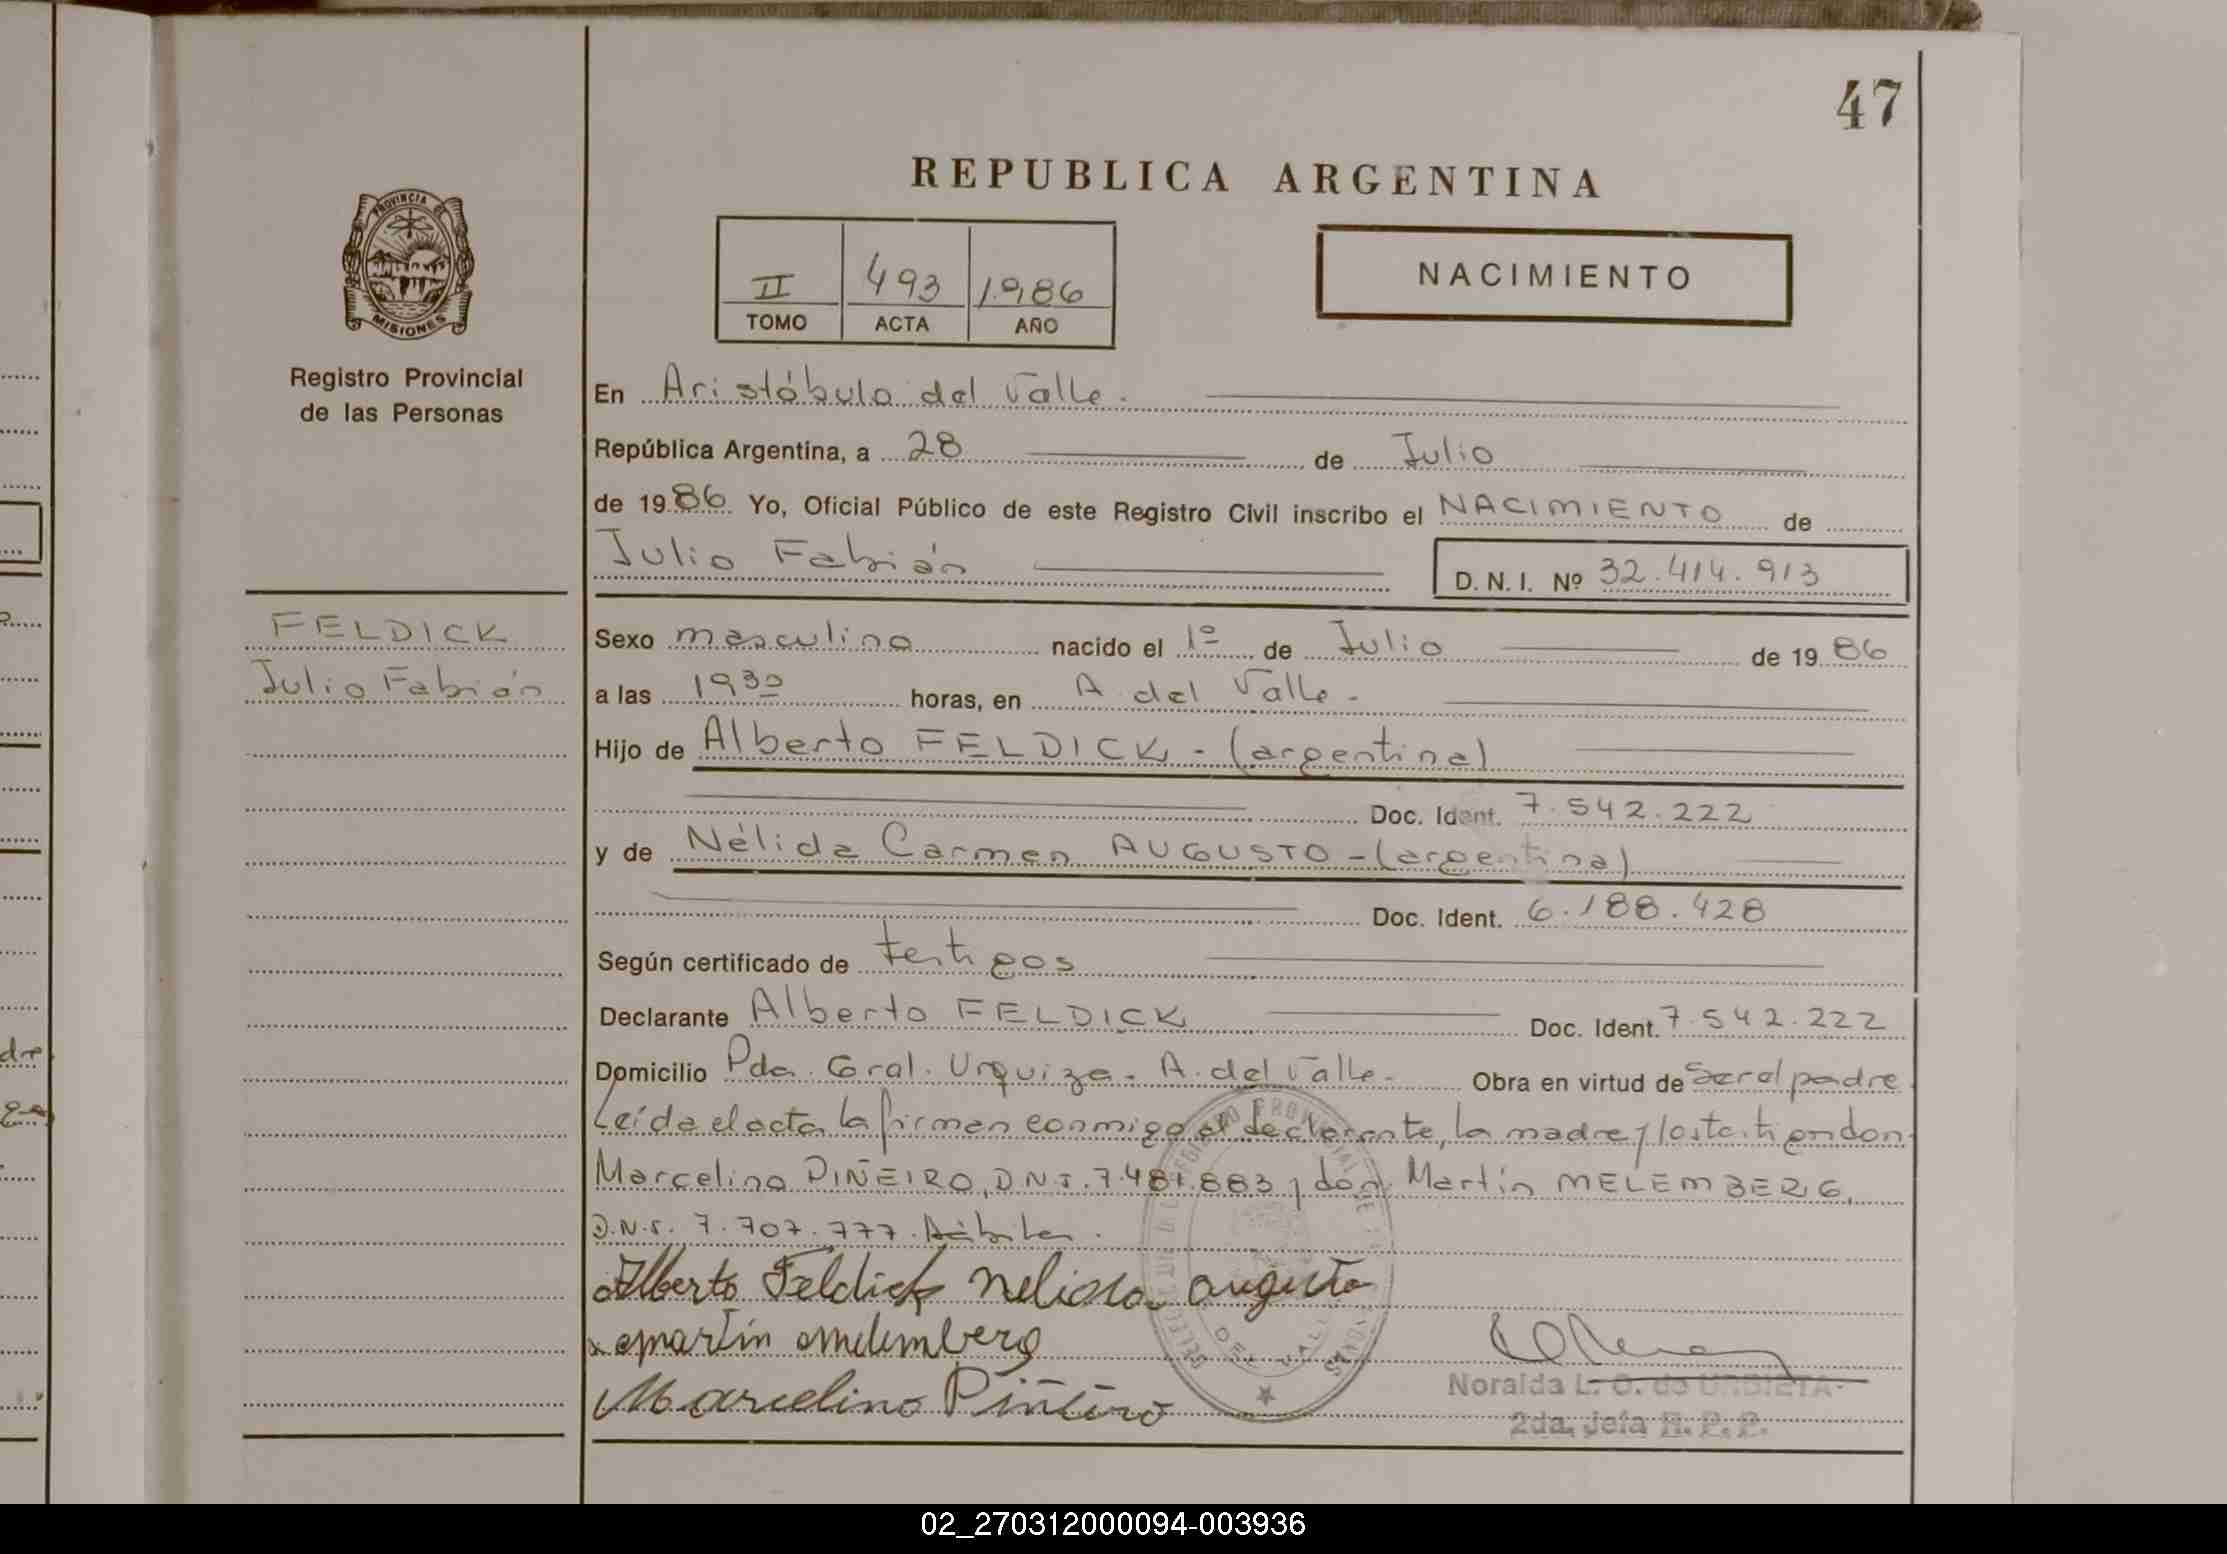 47
REPUBLICA ARGENTINA
PROVINCIA DE
MISIONES
Registro Provincial
de las Personas
II 493 1.986
TOMO ACTA AÑO
NACIMIENTO
En Aristóbulo del Valle.
República Argentina, a 28 de Julio
de 1986. Yo, Oficial Público de este Registro Civil inscribo el NACIMIENTO de
Julio Fabián
D. N. I. Nº 32.414.913
FELDICK
Julio Fabián
Sexo masculino nacido el 1º de Julio de 1986
a las 1930 horas, en A. del Valle.
Hijo de Alberto FELDICK - (argentina)
Doc. Ident. 7.542.222
y de Nélida Carmen AUGUSTO - (argentina)
Doc. Ident. 6.188.428
Según certificado de testigos
Declarante Alberto FELDICK Doc. Ident. 7.542.222
Domicilio Pda. Gral. Urquiza. A. del Valle. Obra en virtud de Ser el padre
Leída el acta la firman conmigo el declarante, la madre y los testigos don
Marcelino PIÑEIRO, D.N.I. 7.481.883 y don Martín MELEMBERG,
D.N.I. 7.707.777.
Alberto Feldick Nelida augusto
martin melemberg
Marcelino Piñeiro
Noralda L. O. de URBIETA
2da. Jefa R. P. P.
02_270312000094-003936